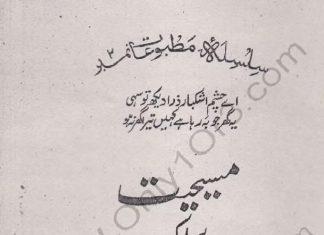 سلسلۂ مطبوعات نمبر ۳
اے چشم اشکبار ذرا دیکھ تو سہی
یہ گھر جو بہہ رہا ہے کہیں تیرا گھر نہ ہو
مسیحیت
www.Only1Or3.com